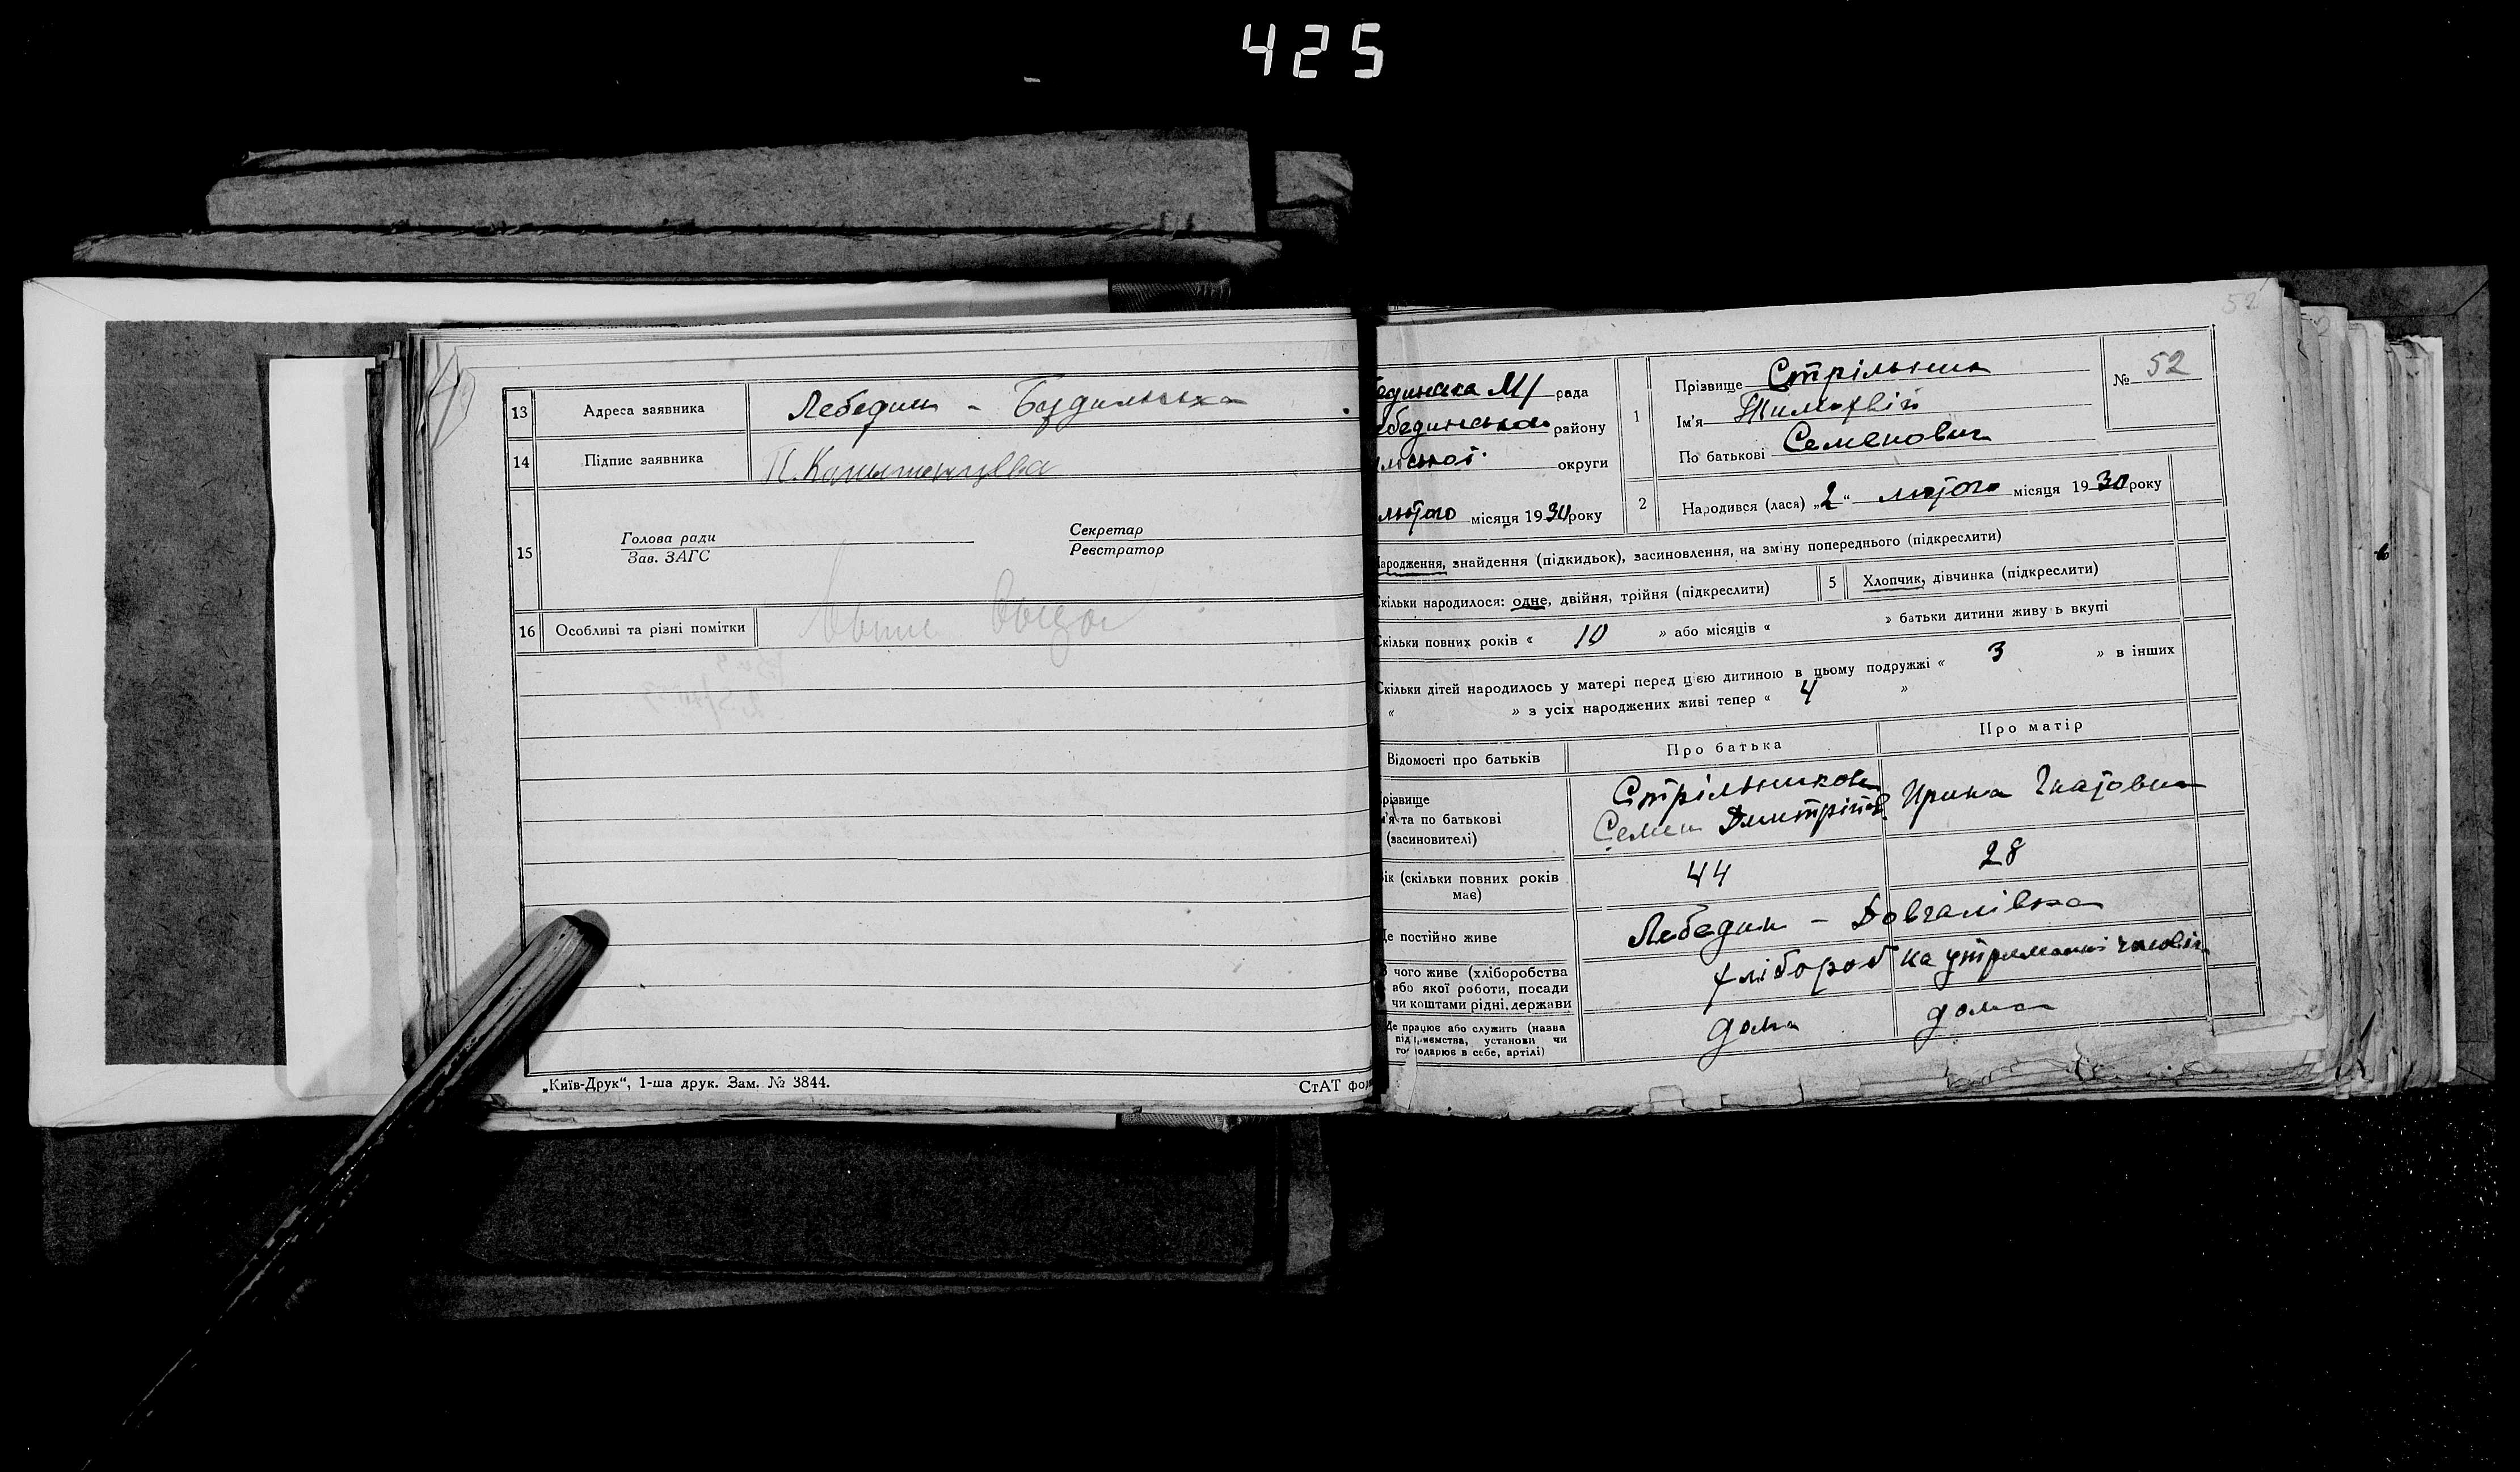 425
13 Адреса заявника Лебедин - Будильська
14 Підпис заявника
15 Голова ради Секретар
Зав. ЗАГС Реєстратор
16 Особливі та різні помітки
„Київ-Друк“, 1-ша друк. Зам. № 3844. СтАТ фо
52
единська М/ рада
ебединського району
мської округи
лютого місяця 1930 року
1 Прізвище Стрільник
Ім'я Тимофій
По батькові Семенович
№ 52
2 Народився (лася) „2“ лютого місяця 1930 року
ародження, знайдення (підкидьок), засиновлення, на зміну попереднього (підкреслити)
кільки народилося: одне, двійня, трійня (підкреслити) 5 Хлопчик, дівчинка (підкреслити)
кільки повних років « 10 » або місяців « » батьки дитини живу ь вкупі
кільки дітей народилось у матері перед цією дитиною в цьому подружжі « 3 » в інших
« » з усіх народжених живі тепер « 4 »
Відомості про батьків Про батька Про матір
різвище Стрільников
м'я та по батькові Семен Дмитріїв Ирина Гнатовна
(засиновителі)
ік (скільки повних років має) 44 28
е постійно живе Лебедин - Довгалівка
З чого живе (хліборобства
або якої роботи, посади
чи коштами рідні, держави хлібороб на утриманні чоловік
Де працює або служить (назва
підприємства, установи чи
господарює в себе, артілі) дома дома